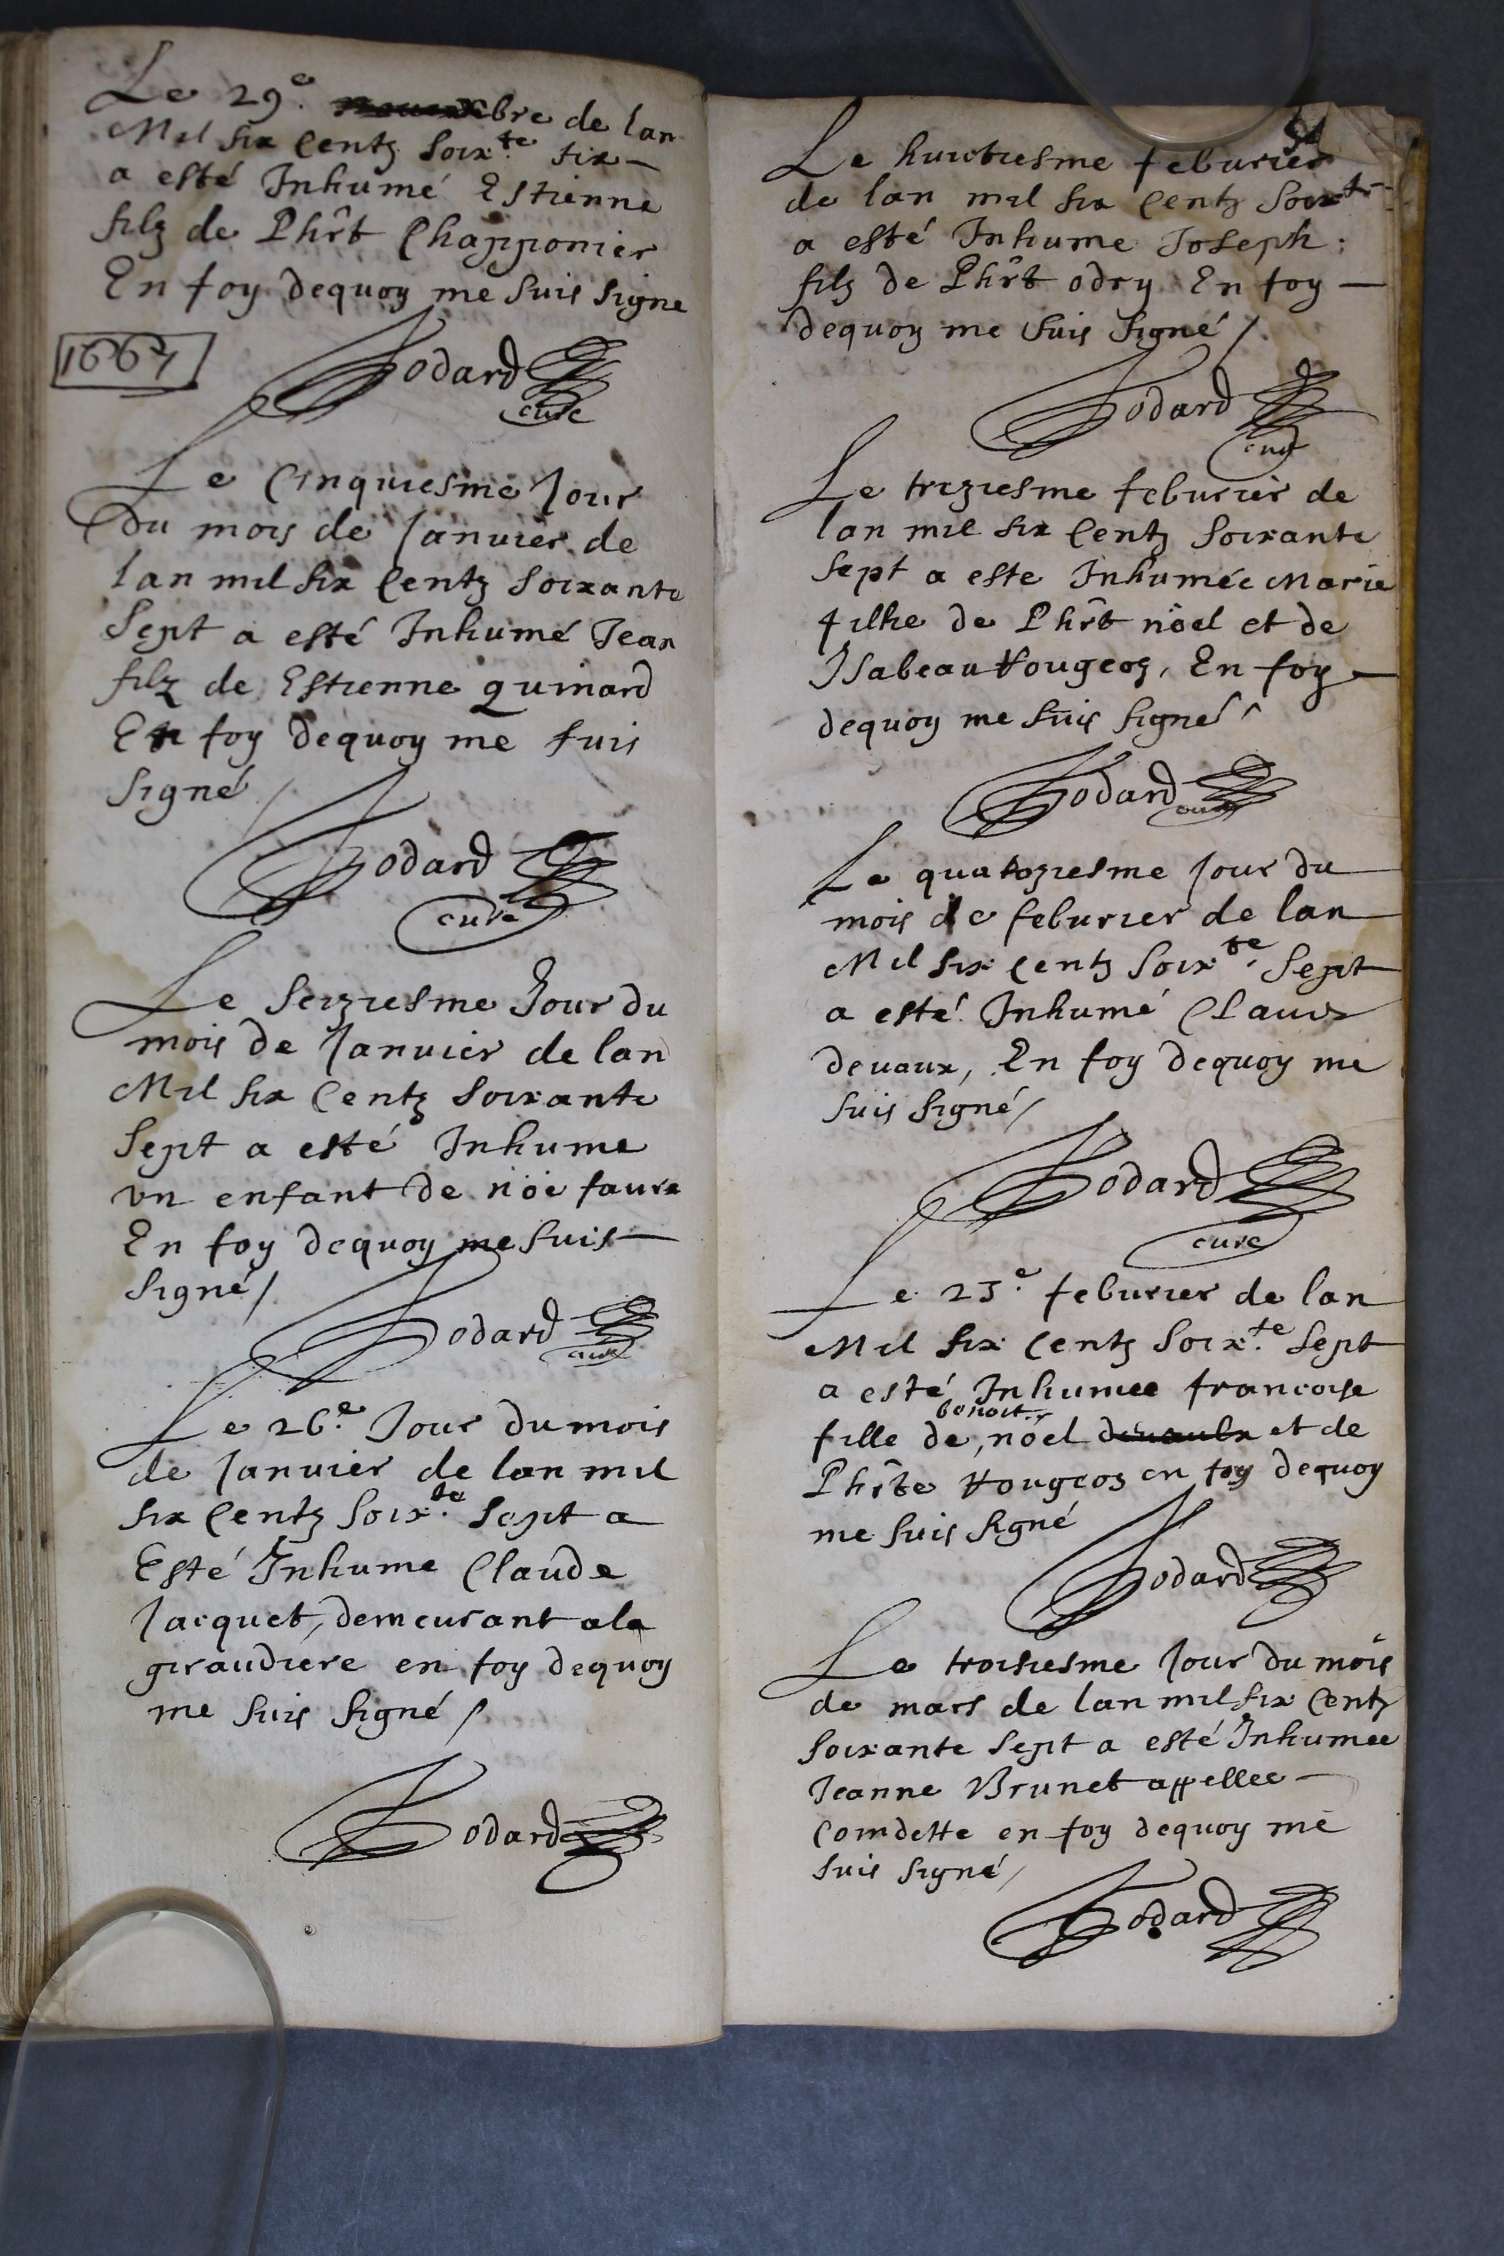 Le 29.e novembre de lan
Mil six Centz soix.te six
a esté Inhumé Estienne
filz de Phrt Chapponier
En foy dequoy me suis signe
1667
Godard
curé
Le Cinquiesme Jour
du mois de Janvier de
lan mil six Centz soixante
Sept a esté Inhumé Jean
filz de Estienne quinard
En foy dequoy me suis
signé /
Godard
curé
Le seiziesme Jour du
mois de Janvier de lan
Mil six Centz soixante
sept a esté Inhume
vn enfant de noë faure
En foy dequoy me suis
signé /
Godard
curé
Le 26.e Jour du mois
de Janvier de lan mil
six Centz soix.te sept a
Esté Inhume Claude
Jacquet, demeurant a la
giraudiere en foy dequoy
me suis signé /
Godard
Le huictiesme feburier
de lan mil six Centz Soixte
a esté Inhume Joseph
filz de Phrt odry En foy
dequoy me suis signé /
Godard
curé
Le treziesme feburier de
lan mil six Centz soixante
sept a este Inhumée Marie
filhe de Phrt nöel et de
Isabeau Vougeoz, En foy
dequoy me suis signé
Godard
curé
Le quatoziesme Jour du
mois de feburier de lan
Mil six Centz soix.te sept
a esté Inhumé Claude
devaux, En foy dequoy me
suis signé /
Godard
curé
Le 23.e feburier de lan
Mil six Centz soix.te sept
a esté Inhumee francoise
benoit
fille de, nöel devaulx et de
Phrte Vougeoz en foy dequoy
me suis signé
Godard
Le troisiesme Jour du mois
de mars de lan mil six Centz
soixante sept a esté Inhumee
Jeanne Brunet appellee
Comdette en foy dequoy me
suis signé /
Godard